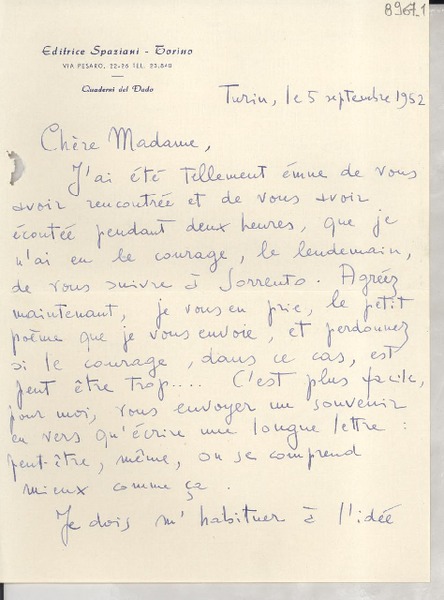 8967.1
Editrice Spaziani - Torino
VIA PESARO, 22-26 TEL. 23.840
Quaderni del Dado
Turin, le 5 septembre 1952
Chère Madame,
J'ai été tellement émue de vous
avoir rencontrée et de vous avoir
écoutée pendant deux heures, que je
n'ai eu le courage, le lendemain,
de vous suivre à Sorrento. Agréez
maintenant, je vous en prie, le petit
poème que je vous envoie, et perdonnez
si le courage, dans ce cas, est
peut être trop.... C'est plus facile,
pour moi, vous envoyer un souvenir
en vers qu'écrire une longue lettre :
peut-être, même, on se comprend
mieux comme ça.
Je dois m'habituer à l'idée